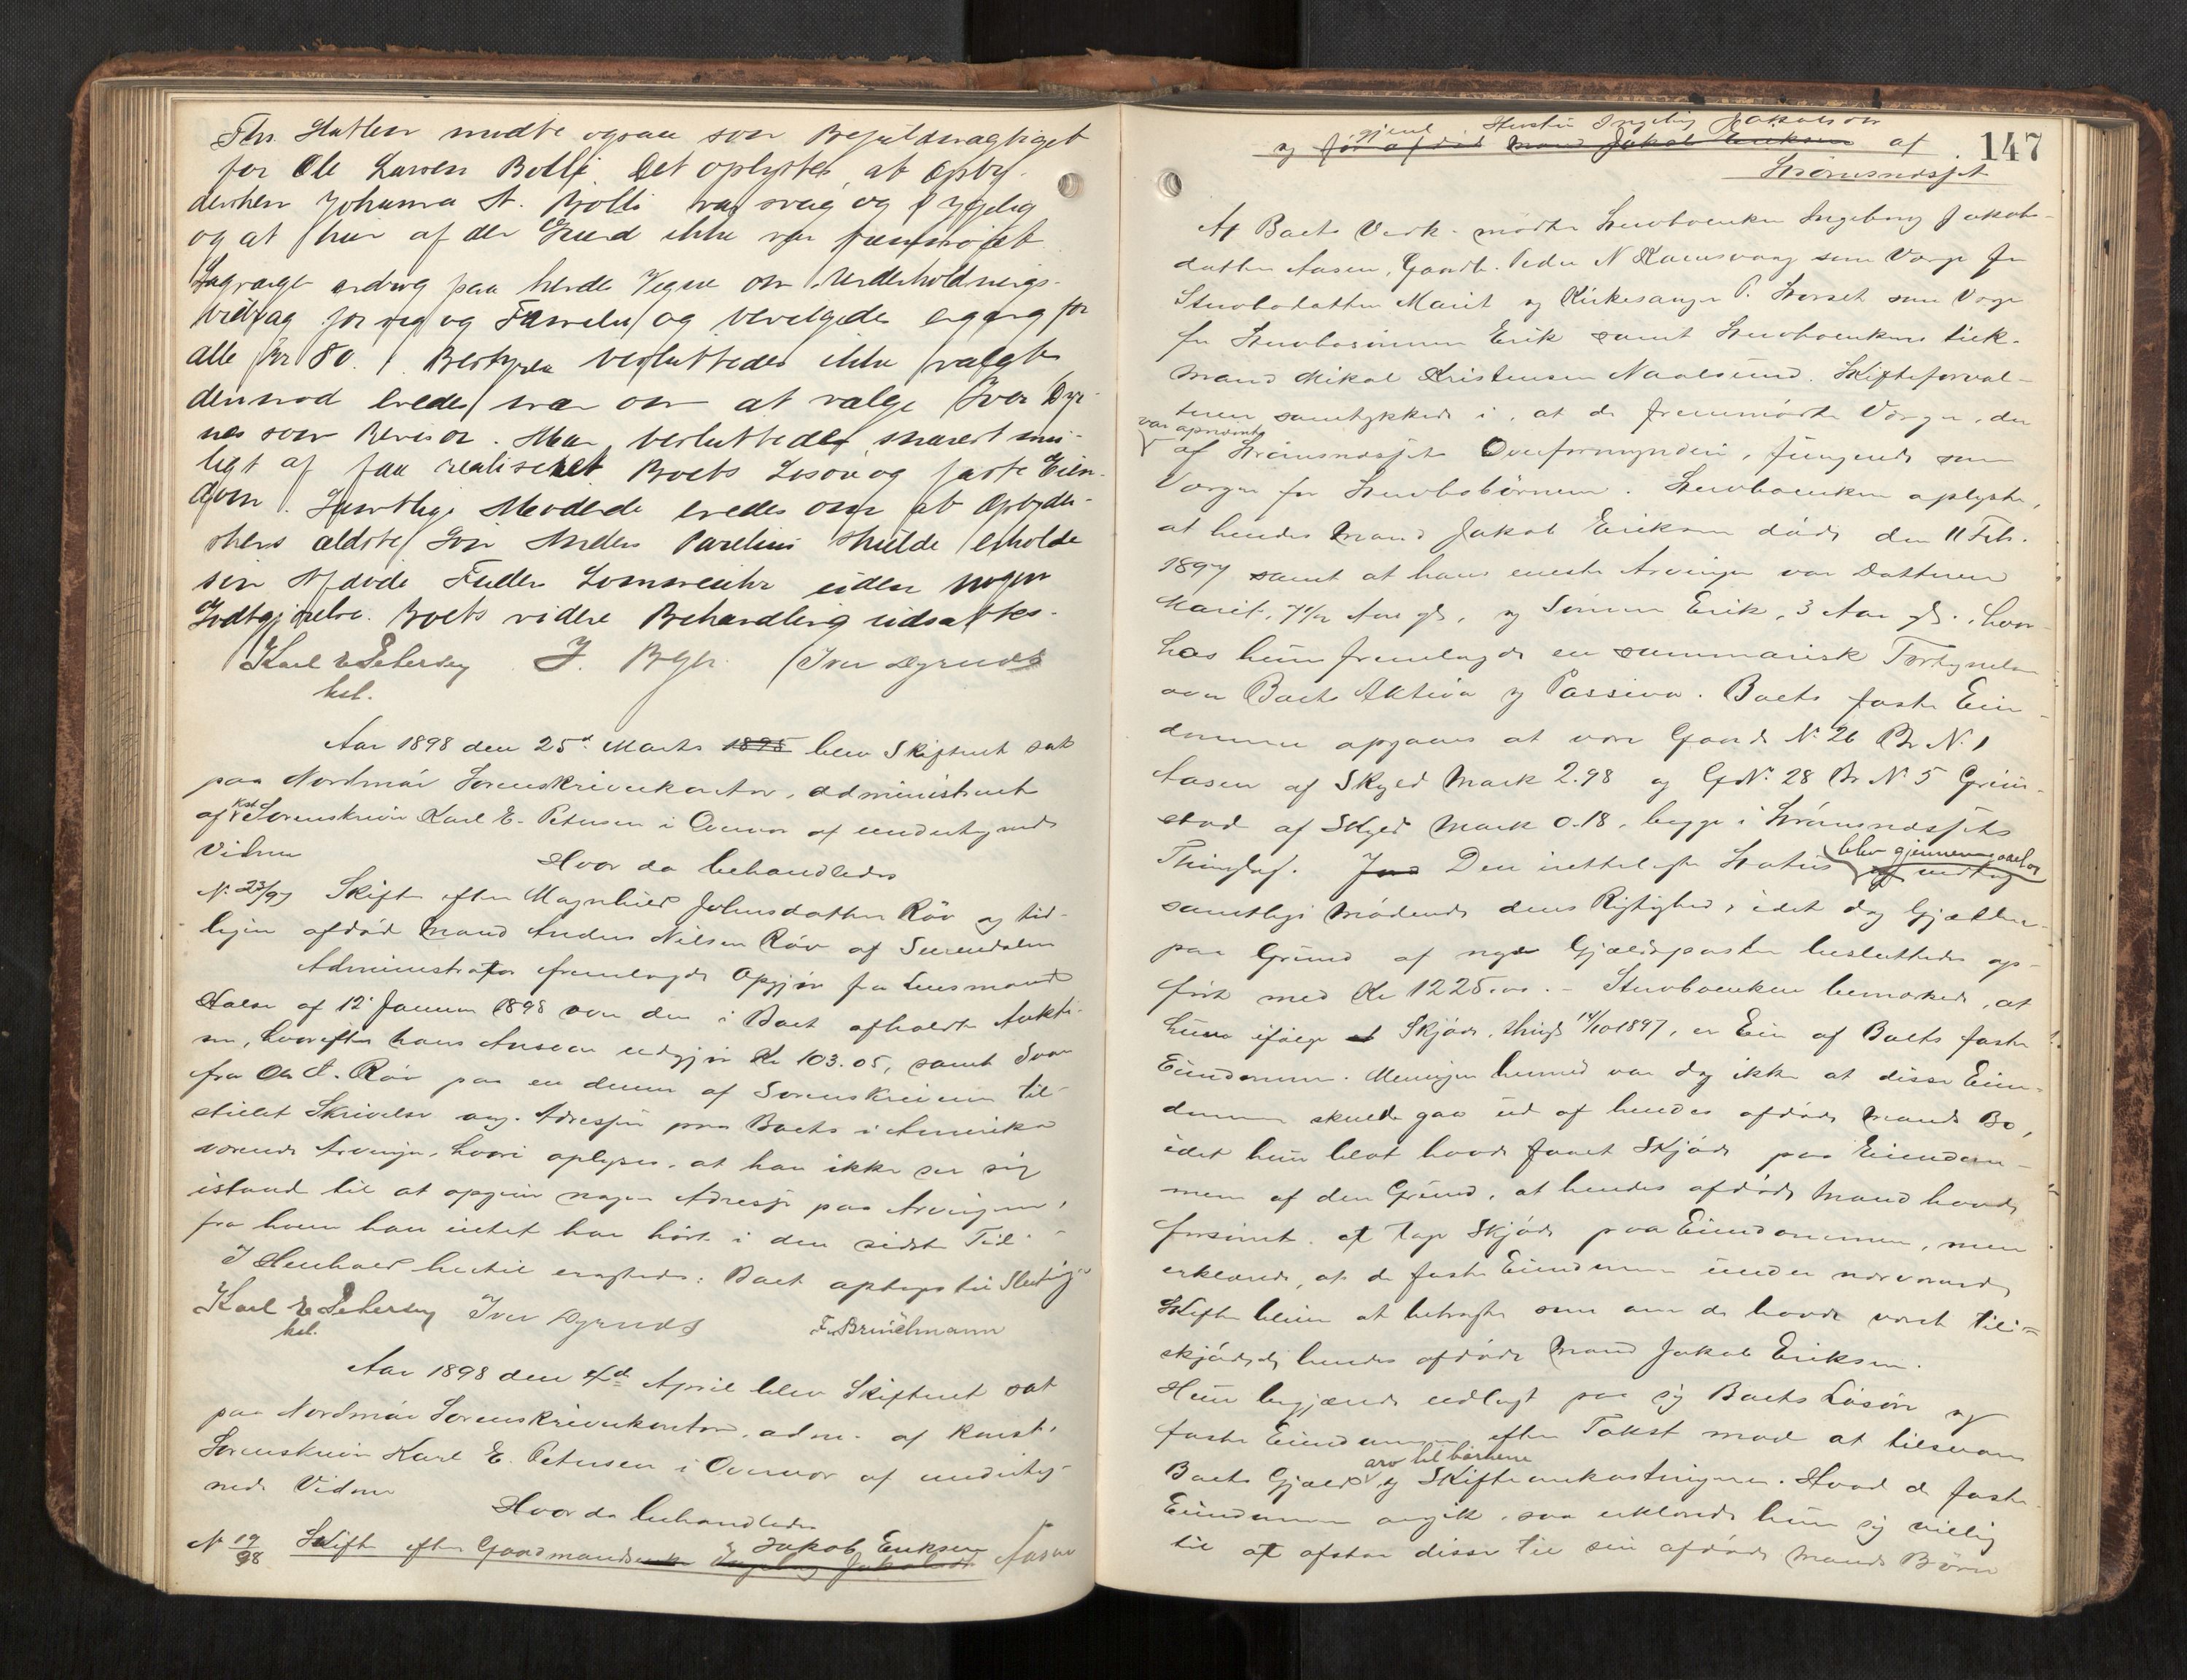 Thr. Hatlen mødte ogsaa som Befuldmægtiget
for Ole Larsen Bolli. Det oplystes, at Opby-
dersken Johanna A. Bolli var svag og sygelig
og at hun af den Grund ikke var fremmødt.
Lagværge androg paa hendes Vegne om Underholdnings-
bidrag for sig og Familie og bevilgedes engang for
alle Kr 80. Bestyrer besluttedes ikke valgt
derimod enedes man om at vælge Iver Dyr-
nes som Revisor. Man besluttedes snarest mu-
ligt at faa realiseret Boets Løsøre og faste Eien-
dom. Samtlige Mødende enedes om at Opbyder-
skens ældste Søn Anders Parelius skulde erholde
sin Afdøde Faders Lommeuhr uden nogen
Godtgjørelse. Boets videre Behandling udsattes.
Karl E Petersen J. Bgh. Iver Dyrnes
kst.
Aar 1898 den 25d Marts 1898 blev Skifteret sat
paa Nordmør Sorenskriverkontor, administreret
af Kst Sorenskriver Karl E. Petersen i Overvær af undertegnede
Vidner
Hvor da behandledes
N. 23/97 Skifte efter Magnhild Johnsdatter Røv og tid-
ligere afdød Mand Anders Nilsen Røv af Surendalen
Administrator fremlagde Opgjør fra Lensmand
Halse af 12 Januar 1898 over den i Boet afholdte Aukti-
on, hvorefter hans Ansvar udgjør Kr 103.05, samt Svar
fra Ole A. Røv paa en denne af Sorenskriveren til-
stillet Skrivelse ang. Adresser paa Boets i Amerika
værende Arvinger, hvori oplyses, at han ikke ser sig
istand til at opgive nogen Adresse paa Arvingerne,
fra hvem han intet har hørt i den sidste Tid.
I Henhold hertil eragtedes: Boet optages til Slutning
Karl E Petersen Iver Dyrnes F. Brinchmann
kst.
Aar 1898 den 2d April blev Skifteret sat
paa Nordmør Sorenskriverkontor, adm. af Konst.
Sorenskriver Karl E. Petersen i Overvær af underteg-
nede Vidner
Hvor da behandledes
N 19/98 Skifte efter Gaardmand Jakob Eriksen Aasen
147
og gjenl Hustru Ingeborg Jakobsdr
før afdød Mand Jakob Eriksen af
Strømsnæsset
Af Boets Vedk. mødte Stervboenken Ingeborg Jakobs-
datter Aasen, Gaardb. Peder N Ramsvaag som Værge for
Stervbodatteren Marit og Kirkesanger P. Horset som Værge
for Stervbosønnen Erik samt Stervboenkens tilk.
Mand Mikal Kristensen Naalsund. Skifteforval-
teren samtykkede i, at de fremmødte Værger, der
var opnævnte
af Strømsnæssets Overformynderi, fungerede som
Værger for Stervbobørnene. Stervboenken oplyste,
at hendes Mand Jakob Eriksen døde den 11 Feb.
1897 samt at hans eneste Arvinger var Datteren
Marit, 7 1/2 Aar gl, og Sønnen Erik, 3 Aar gl. Hvor-
hos hun fremlagde en summarisk Fortegnelse
over Boets Aktiva og Passiva. Boets faste Eien-
domme opgaves at være Gaards N. 26 Br N. 1
Aasen af Skyld Mark 2.98 og G.N. 28 Br N. 5 Grim-
stad af Skyld Mark 0.18, begge i Strømsnæssets
Thinglag. Den irettelagte Status blev gjennemgaaet og
samtlige Mødende dens Rigtighed, idet dog Gjælden
paa Grund af nye Gjældsposter besluttedes op-
ført med Kr 1225.00. – Stervboenken bemærkede, at
hun ifølge Skjøde, thingl 14/10 1897, er Eier af Boets faste
Eiendomme. Meningen hermed var dog ikke at disse Eien-
domme skulde gaa ud af hendes afdøde Mands Bo,
idet hun blot havde faaet Skjøde paa Eiendom-
mene af den Grund, at hendes afdøde Mand havde
forsømt at tage Skjøde paa Eiendommene, men
erklærede, at de faste Eiendomme under nærværende
Skifte bliver at betragte som om de havde været til-
skjødede hendes afdøde Mand Jakob Eriksen.
Hun begjærede udlagt paa sig Boets Løsøre og
faste Eiendomme efter Takst mod at tilsvare
arv til børnene
Boets Gjæld og Skifteomkostningerne. Hvad de faste
Eiendomme angik, saa erklærede hun sig villig
til at afstaa disse til sin afdøde Mands Børn